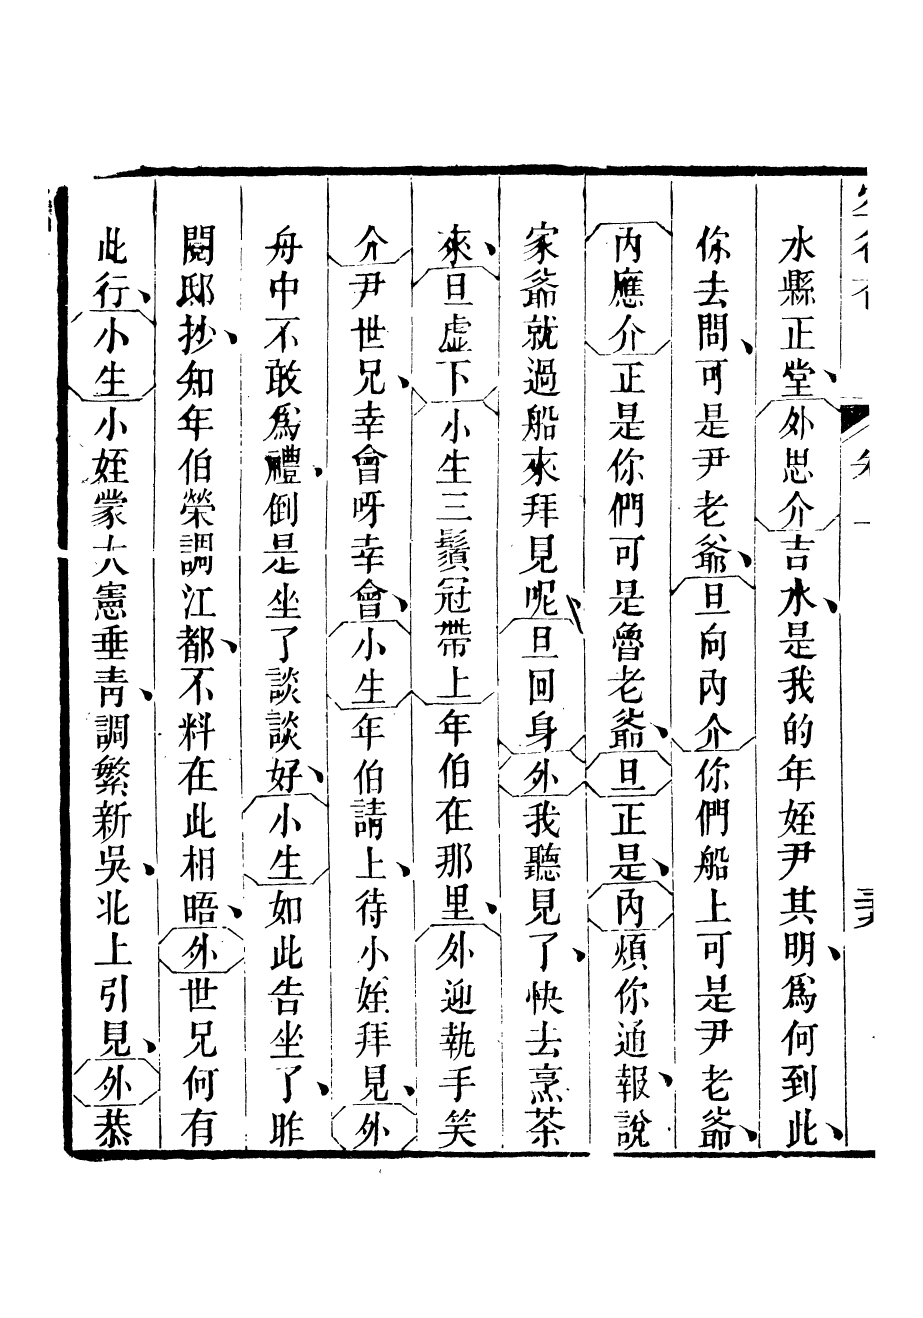 水縣正堂、外思介吉水、是我的年姪尹其明、爲何到此、
你去問、可是尹老爺、旦向內介你們船上可是尹老爺、
內應介正是你們可是魯老爺、旦正是、內煩你通報、說
家爺就過船來拜見呢、旦回身外我聽見了、快去烹茶
來、旦虛下小生三鬚冠帶上年伯在那里、外迎執手笑
介尹世兄、幸會呀幸會、小生年伯請上、待小姪拜見、外
舟中不敢爲禮、倒是坐了談談好、小生如此告坐了、昨
閱邸抄、知年伯榮調江都、不料在此相晤、外世兄何有
此行、小生小姪蒙大憲垂靑、調繁新吳、北上引見、外恭